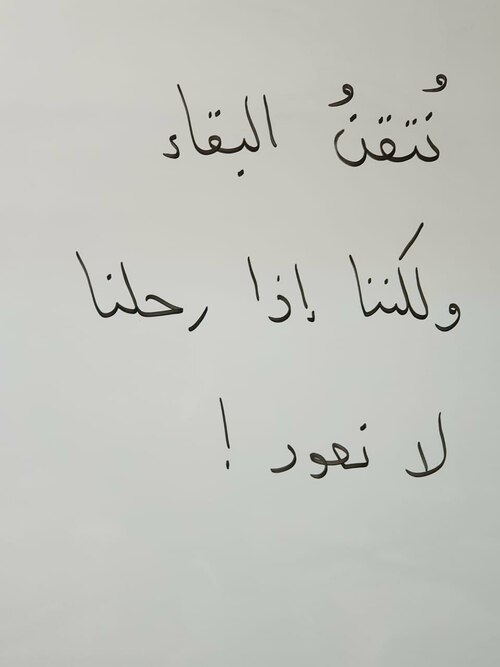 نُتقنُ البقاء
ولكننا إذا رحلنا
لا نعود !